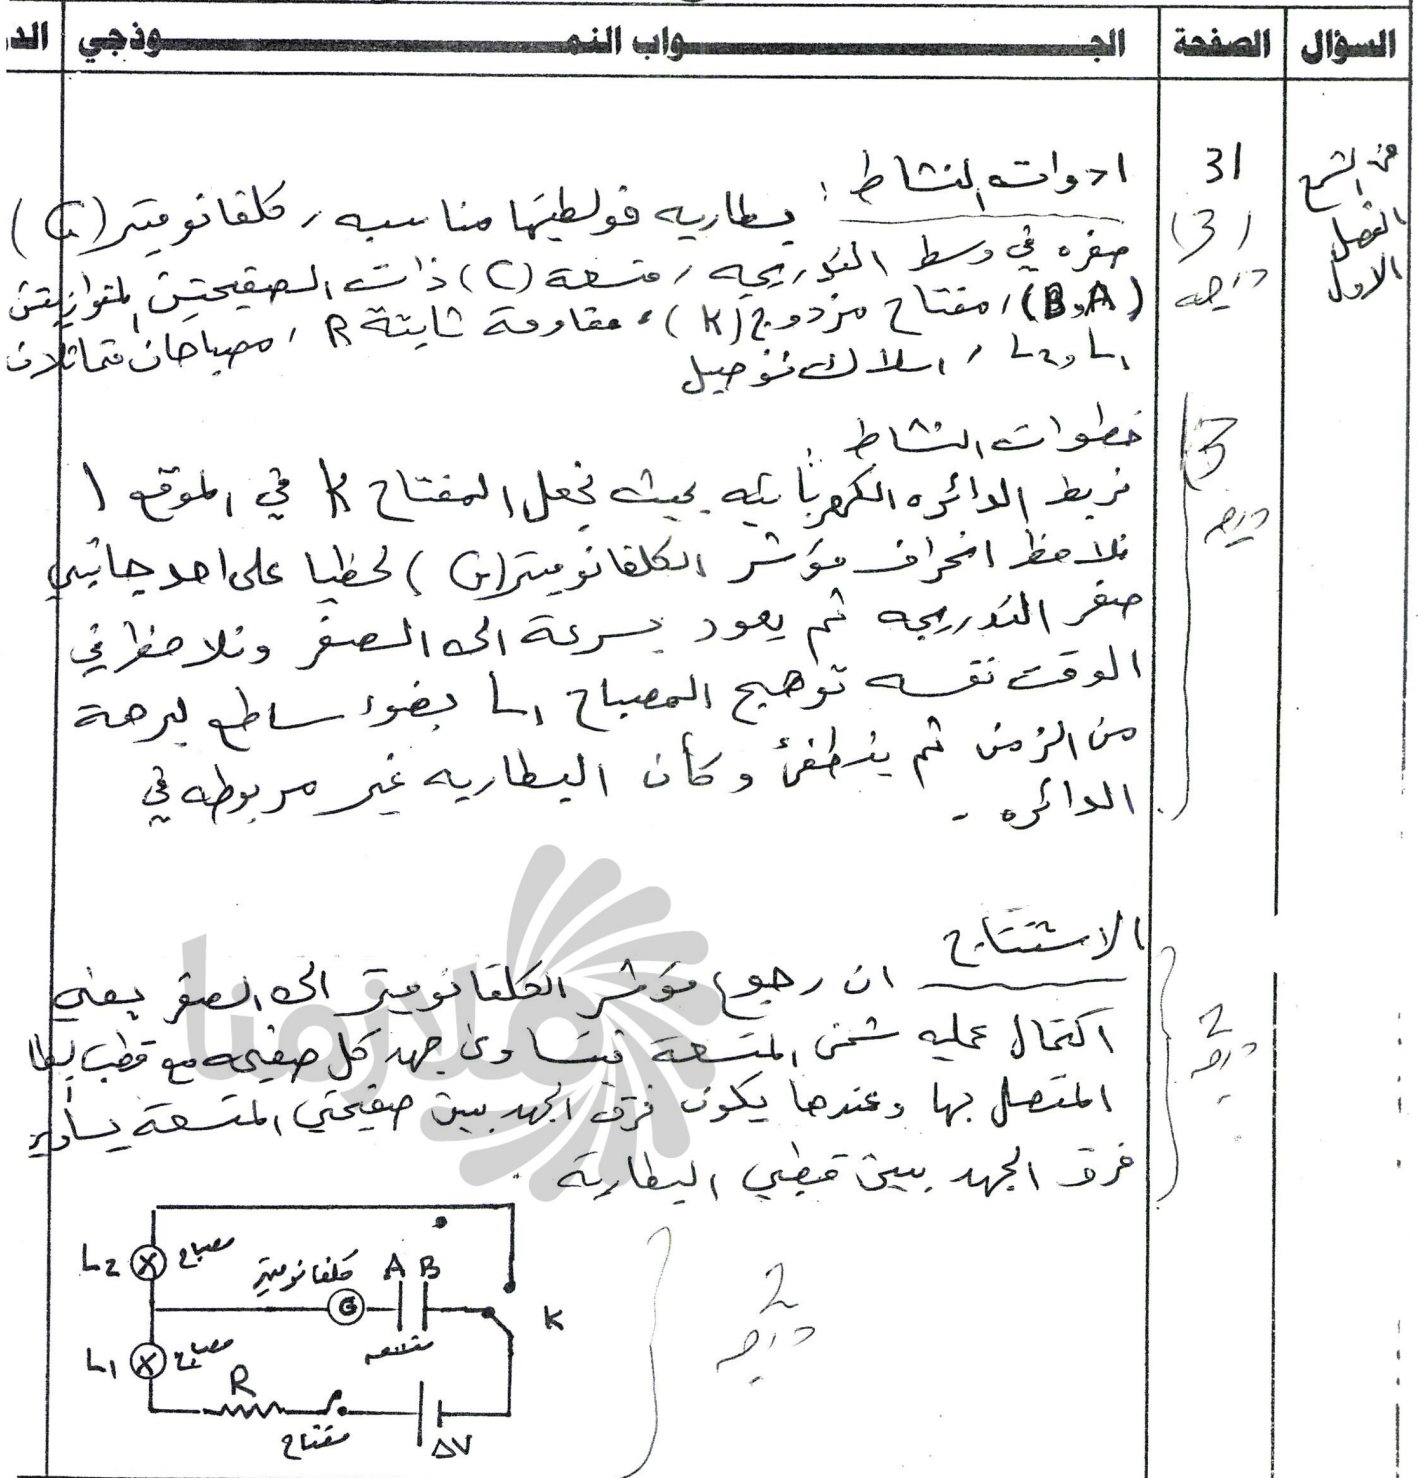 السؤال الصفحة الجـــواب النمـــوذجي الد
من الشرح
الفصل
الاول
31
(3)
درجه
ادوات النشاط :
بطاريه فولطيتها مناسبه , كلفانوميتر (G)
صفره في وسط التدريجه , متسعة (C) ذات الصفيحتين المتوازيتين
(A و B) , مفتاح مزدوج (K) , مقاومة ثابتة R , مصباحان متماثلان
L1 و L2 , اسلاك توصيل
3
درجه
خطوات النشاط :
نربط الدائره الكهربائيه بحيث نجعل المفتاح K في الموقع 1
نلاحظ انحراف مؤشر الكلفانوميتر (G) لحظيا على احد جانبي
صفر التدريجه ثم يعود بسرعة الى الصفر ونلاحظ في
الوقت نفسه توهج المصباح L1 بضوء ساطع لبرهة
من الزمن ثم ينطفئ وكأن البطاريه غير مربوطه في
الدائره .
الاستنتاج
2
درجه
ان رجوع مؤشر الكلفانوميتر الى الصفر يعني
اكتمال عمليه شحن المتسعة فيتساوى جهد كل صفيحه مع قطب
المتصل بها وعندها يكون فرق الجهد بين صفيحتي المتسعة يساوي
فرق الجهد بين قطبي البطارية .
ملازمنا
2
درجه
L2 مصباح
كلفانوميتر A B
G
K
L1 مصباح
متسعه
R
مفتاح
ΔV